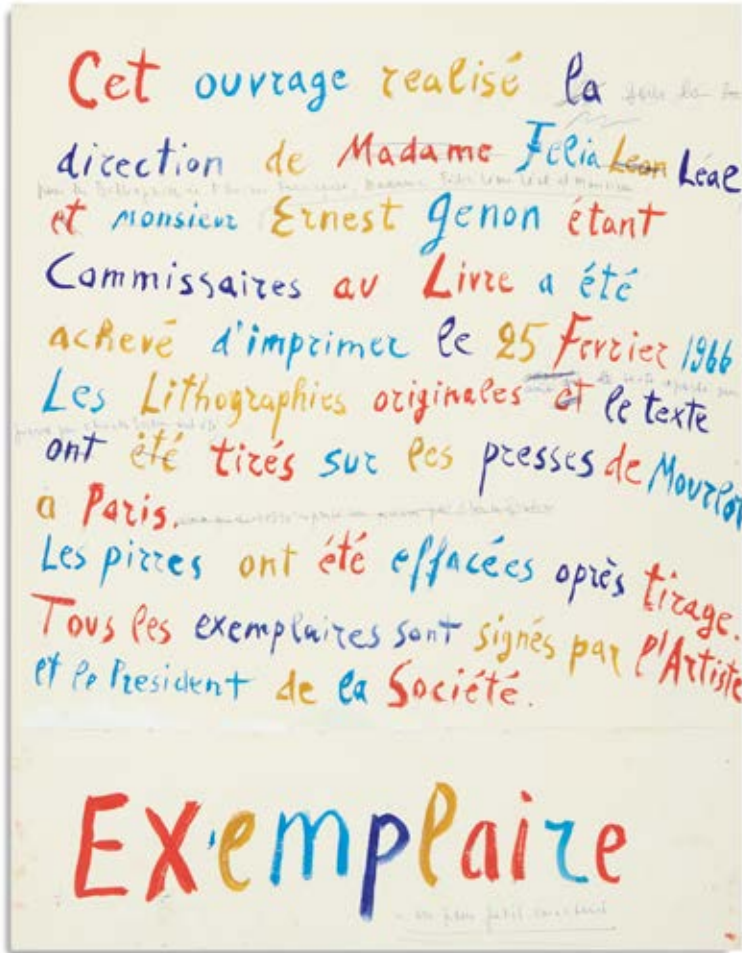 Cet ouvrage realisé la
direction de Madame Felia Leon Léal
et monsieur Ernest genon étant
Commissaires au Livre a été
achevé d'imprimer le 25 Fevrier 1966
Les Lithographies originales et le texte
ont été tirés sur les presses de Mourlot
a Paris.
Les pirres ont été effacées oprès tirage.
Tous les exemplaires sont signés par l'Artiste
et le President de la Société.
Exemplaire